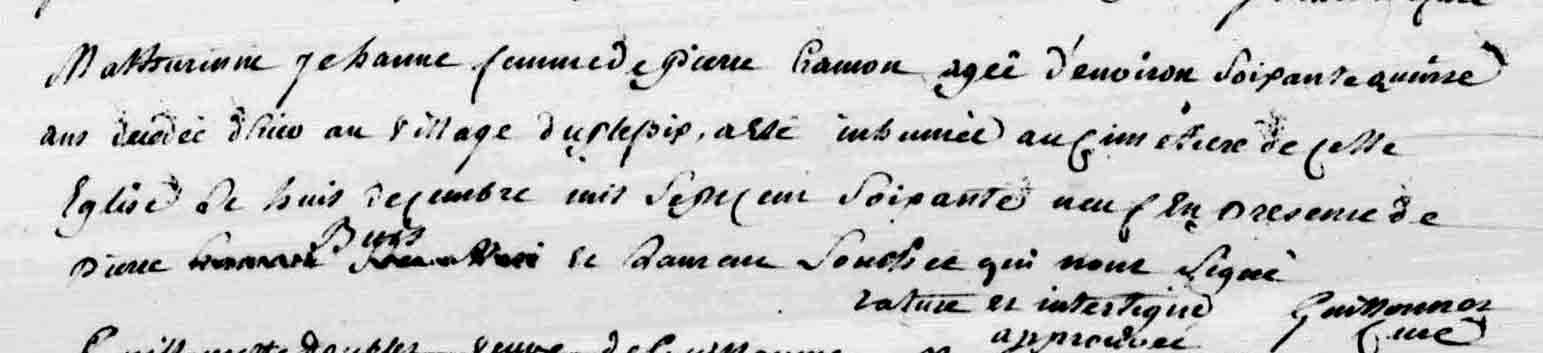 Mathurinne Jehanne femme de Pierre Gamon agéé d'environ soixante quinse
ans decedéé d'hier au village du plessix, a esté inhuméé au cimetiere de cette
Eglise le huit decembre mil sept cent soixante neuf En presence de
pierre Buis et Laurent qui n'ont signé
rature et interligne Guillournos
approuvéé Curé
Guillemette veuve de Guillaume